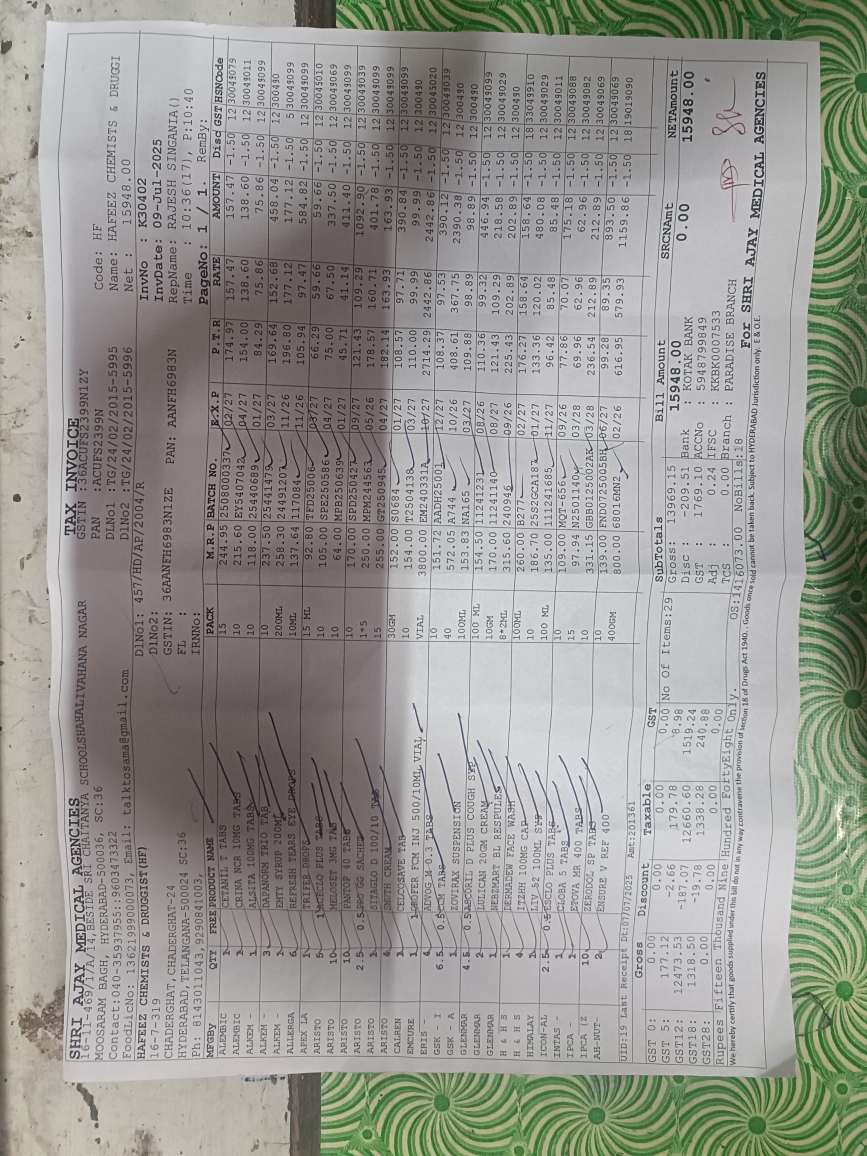 TAX INVOICE
SHRI AJAY MEDICAL AGENCIES
16-11-469/17/A/14,BESIDE SRI CHAITANYA SCHOOLSHAHALIVAHANA NAGAR
MOOSARAM BAGH, HYDERABAD-500036, SC:36
Contact:040-35937955::9603473322
FoodLicNo: 13621999000073, Email: talktosama@gmail.com
GSTIN :36ACUFS2399N1ZY
PAN :ACUFS2399N
DlNo1 :TG/24/02/2015-5995
DlNo2 :TG/24/02/2015-5996
Code: HF
Name: HAFEEZ CHEMISTS & DRUGGI
Net : 15948.00
HAFEEZ CHEMISTS & DRUGGIST(HF)
16-7-319
CHADERGHAT,CHADERGHAT-24
HYDERABAD,TELANGANA-500024 SC:36
Ph: 8143011043,9290841003,
DlNo1: 457/HD/AP/2004/R
DlNo2:
GSTIN: 36AANFH6983N1ZE PAN: AANFH6983N
FL :
IRNNo:
InvNo : K30402
InvDate: 09-Jul-2025
RepName: RAJESH SINGANIA()
Time : 10:36(17), P:10:40
PageNo: 1 / 1. RemBy:
MFGBy QTY FREE PRODUCT NAME PACK M.R.P BATCH NO. E.X.P P.T.R RATE AMOUNT Disc GST HSNCode
ALEMBIC 1 CETANIL T TABS 15 244.95 2508000337 02/27 174.97 157.47 157.47 -1.50 12 30049079
ALEMBIC 1 NCR 10MG TABS 10 215.60 EY5407042 04/27 154.00 138.60 138.60 -1.50 12 30049011
ALKEM - 1 ALSITA 100MG TABS 10 118.00 25440689 01/27 84.29 75.86 75.86 -1.50 12 30049099
ALKEM - 3 DAPANORM TRIO TAB 10 237.50 25441479 03/27 169.64 152.68 458.04 -1.50 12 300490
ALKEM - 1 EMTY SYRUP 200ML 200ML 258.30 24491207 11/26 196.80 177.12 177.12 -1.50 5 30049099
ALLERGA 6 REFRESH TEARS EYE DROPS 10ML 137.64 117084 11/26 105.94 97.47 584.82 -1.50 12 30049099
APEX LA 1 TRIFER DROPS 15 ML 92.80 FFD25006 03/27 66.29 59.66 59.66 -1.50 12 30045010
ARISTO 5 1 ACECLO PLUS TABS 10 105.00 SPE250586 04/27 75.00 67.50 337.50 -1.50 12 30049069
ARISTO 10 MELOSET 3MG TAB 10 64.00 MPB250639 01/27 45.71 41.14 411.40 -1.50 12 30049099
ARISTO 10 PANTOP 40 TABS 10 170.00 SPD250427 09/27 121.43 109.29 1092.90 -1.50 12 30049039
ARISTO 2.5 0.5 PRO GO SACHET 1*5 250.00 MPM244563 05/26 178.57 160.71 401.78 -1.50 12 30049099
ARISTO 1 SITAGLO D 100/10 TAB 15 255.00 GT250945 04/27 182.14 163.93 163.93 -1.50 12 30049099
CALREN 4 CREAM 30GM 152.00 S0684 01/27 108.57 97.71 390.84 -1.50 12 30049099
EMCURE 1 CELCOSAVE TAB 10 154.00 T250413B 03/27 110.00 99.99 99.99 -1.50 12 300490
1 OROFER FCM INJ 500/10ML VIAL VIAL 3800.00 EM240331A 10/27 2714.29 2442.86 2442.86 -1.50 12 30049020
ERIS - 4 ADVOG M 0.3 TABS 10 151.72 AADH25001 12/27 108.37 97.53 390.12 -1.50 12 30049039
GSK - I 6.5 0.5 CCM TABS 40 572.05 A744 10/26 408.61 367.75 2390.38 -1.50 12 300490
GSK - A 1 ZOVIRAX SUSPENSION 100ML 153.83 NA165 03/27 109.88 98.89 98.89 -1.50 12 300490
GLENMAR 4.5 0.5 ASCORIL D PLUS COUGH SYP 100 ML 154.50 11241231 08/26 110.36 99.32 446.94 -1.50 12 30049099
GLENMAR 2 LULICAN 20GM CREAM 10GM 170.00 11241140 08/27 121.43 109.29 218.58 -1.50 12 30049029
H & H S 1 NEBZMART BL RESPULES 8*2ML 315.60 240946 09/26 225.43 202.89 202.89 -1.50 12 300490
H & H S 1 DERMADEW FACE WASH 100ML 260.00 B277 02/27 176.27 158.64 158.64 -1.50 18 33049910
4 ITZHH 100MG CAP 10 186.70 25S2GCA187 01/27 133.36 120.02 480.08 -1.50 12 30049029
HIMALAY 1 LIV 52 100ML SYP 100 ML 135.00 11241685 11/27 96.42 85.48 85.48 -1.50 12 30049011
ICON-AL 2.5 0.5 ESCLO PLUS TABS 10 109.00 MQT-6556 09/26 77.86 70.07 175.18 -1.50 12 30049088
INTAS - 1 CLOBA 5 TABS 15 97.94 N2501140 03/28 69.96 62.96 62.96 -1.50 12 30049082
IPCA - 1 ETOVA MR 400 TABS 10 331.15 GBB0125002AK 03/28 236.54 212.89 212.89 -1.50 12 30049069
IPCA (Z 10 ZERODOL SP TABS 10 139.00 PND0725005BH 06/27 99.28 89.35 893.50 -1.50 12 30049069
AH-NUT- 2 ENSURE V REF 400 400GM 800.00 68016MN2 02/26 616.95 579.93 1159.86 -1.50 18 19019090
UID:19 Last Receipt Dt:07/07/2025 Amt:201361
Gross Discount Taxable GST
GST 0: 0.00 0.00 0.00 0.00
GST 5: 177.12 -2.66 179.78 8.98
GST12: 12473.53 -187.07 12660.60 1519.24
GST18: 1318.50 -19.78 1338.28 240.88
GST28: 0.00 0.00 0.00 0.00
No Of Items:29
SubTotals
Gross: 13969.15
Disc : -209.51
GST : 1769.10
Adj : 0.24
TCS :
Bill Amount SRCNAmt NETAmount
15948.00 0.00 15948.00
Bank : KOTAK BANK
ACCNo : 5948799849
IFSC : KKBK0007533
Branch : PARADISE BRANCH
Rupees Fifteen Thousand Nine Hundred FortyEight Only.
OS:1416073.00 NoBills:18
For SHRI AJAY MEDICAL AGENCIES
We hereby certify that goods supplied under this bill do not in any way contravene the provision of section 18 of Drugs Act 1940. . Goods once sold cannot be taken back. Subject to HYDERABAD Jurisdiction only. E & O.E.